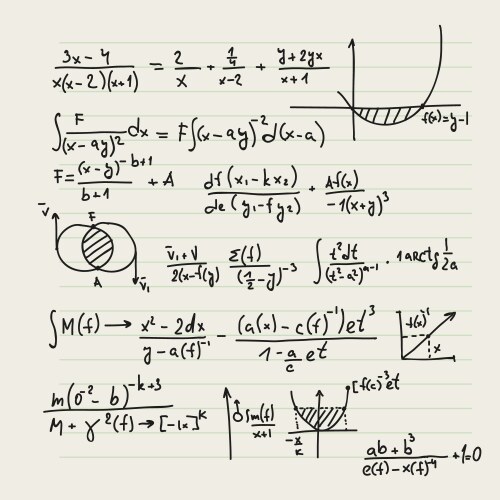 (3x-4)/(x(x-2)(x+1)) = 2/x + (1/4)/(x-2) + (y+2yx)/(x+1)
f(x)=y-1
∫ F/(x-ay)² dx = F∫(x-ay)⁻² d(x-a)
F = (x-y)^(-b+1)/(b+1) + A
df(x₁-kx₂)/de(y₁-fy₂) + Af(x)/(-1(x+y)³)
v̄ F A v̄₁
(v̄₁+V)/(2(x-f(y) Σ(f)/((1/2-y)⁻³ ∫ t²dt/(t²-a²)^(a-1) · 1arctg 1/2a
∫M(f) → (x²-2dx)/(y-a(f)⁻¹) - ((a(x)-c(f)⁻¹)et³)/(1-(a/c)et)
f(x)⁻¹ x
m(σ⁻²-b)^(-k+3)/(M+γ²(f)→[-1x]^k
∫m(f)/(x+1)
-x/k
[f(c)⁻³et
(ab+b³)/(e(f)-x(f)⁻⁴) +1=0